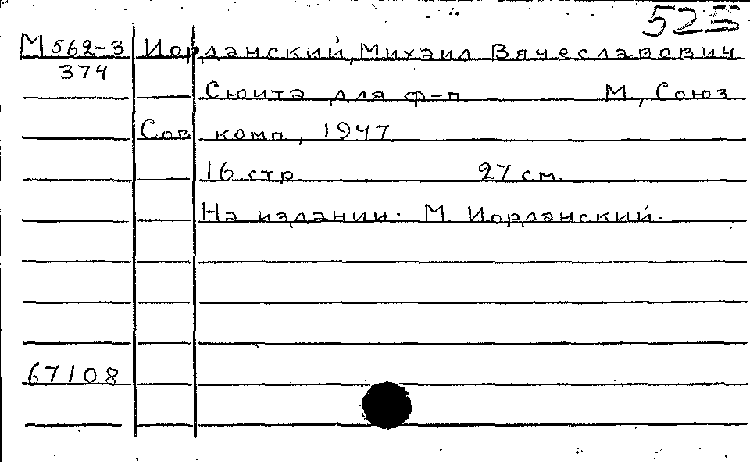 525
М 562-3 Иорданский, Михаил Вячеславович
374
Сюита для ф-п М, Союз
Сов комп, 1947
16 стр 27 см.
На издании: М. Иорданский.
67108